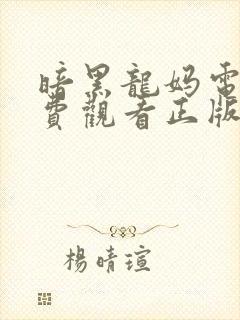 暗黑龍媽電
費觀看正版
楊晴瑄